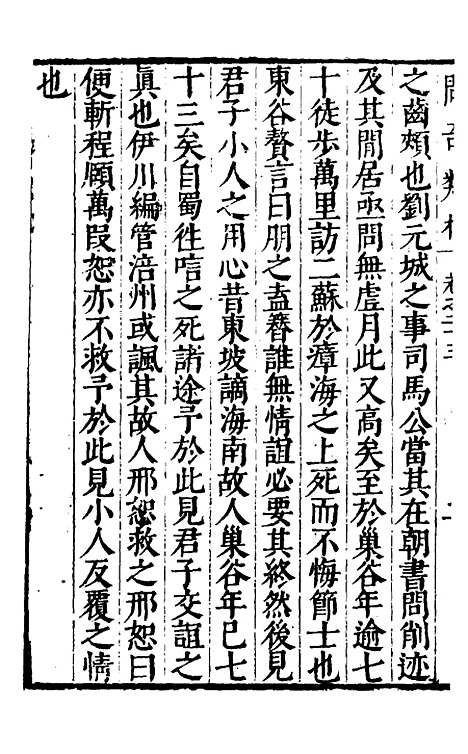 之齒頰也劉元城之事司馬公當其在朝書問削迹
及其閒居亟問無虛月此又高矣至於巢谷年逾七
十徒步萬里訪二蘇於瘴海之上死而不悔節士也
東谷贅言曰朋之盍簪誰無情誼必要其終然後見
君子小人之用心昔東坡謫海南故人巢谷年已七
十三矣自蜀徃唁之死諸途予於此見君子交誼之
眞也伊川編管涪州或諷其故人邢恕救之邢恕曰
便斬程頤萬段恕亦不救予於此見小人反覆之情
也